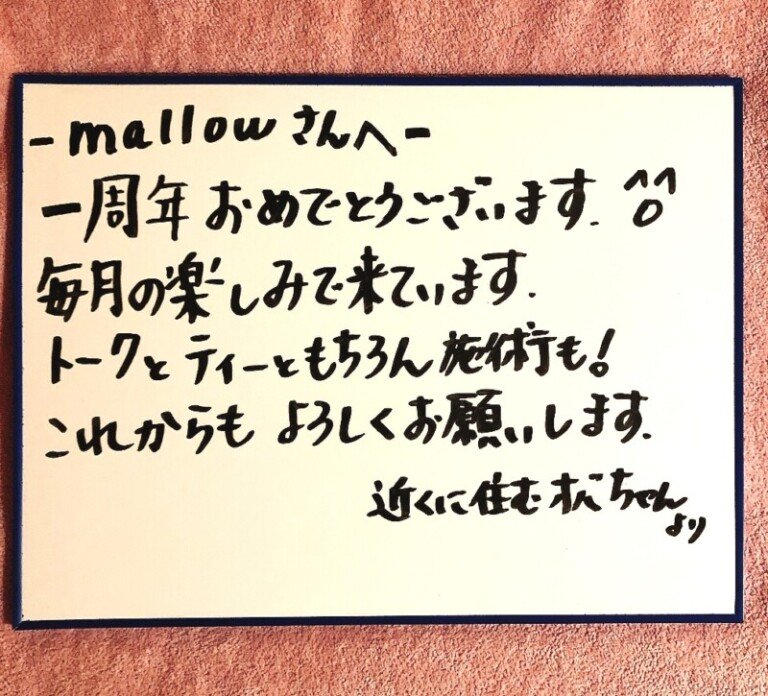 -mallowさんへ-
一周年おめでとうございます. ^^o
毎月の楽しみで来ています.
トークとティーともちろん施術も!
これからもよろしくお願いします.
近くに住むオバちゃん
より